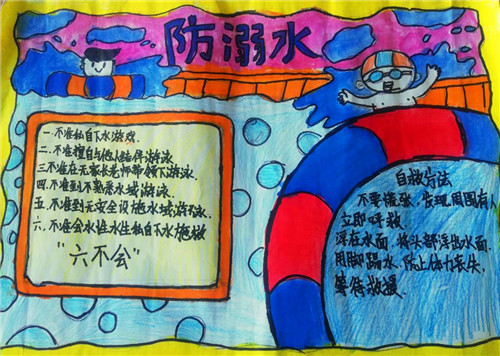 防溺水
一.不准私自下水游戏.
二.不准擅自与他人结伴游泳.
三.不准在无家长老师带领下游泳.
四.不准到不熟悉水域游泳.
五.不准到无安全设施水域游泳.
六.不准会水性水生私自下水施救
"六不会"
自救方法
不要慌张,发现周围有人
立即呼救
浮在水面,将头部浮出水面.
用脚踢水,防止体力丧失,
等待救援.